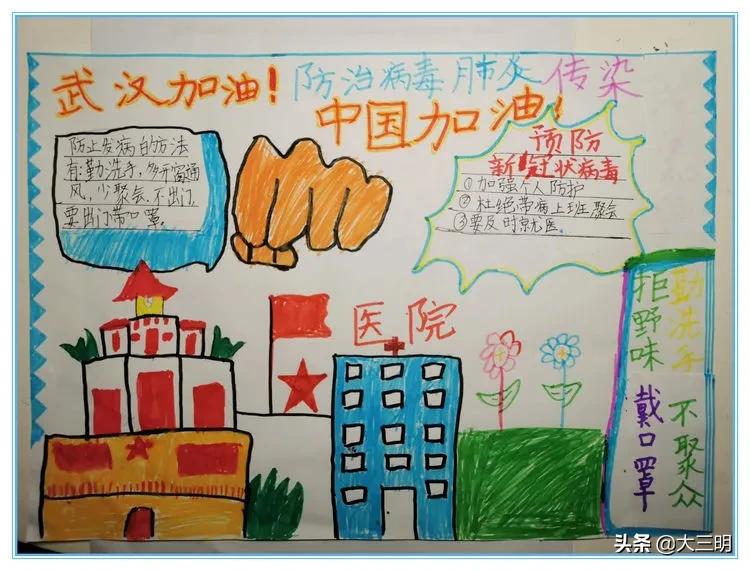 武汉加油！防治病毒肺炎传染
中国加油！
防止发病的方法
有：勤洗手，多开窗通
风，少聚会，不出门，
要出门带口罩。
预防
新冠状病毒
①加强个人防护
②杜绝带病上班聚会
③要及时就医。
医院
勤洗手 不聚众
拒野味 戴口罩
头条 @大三明